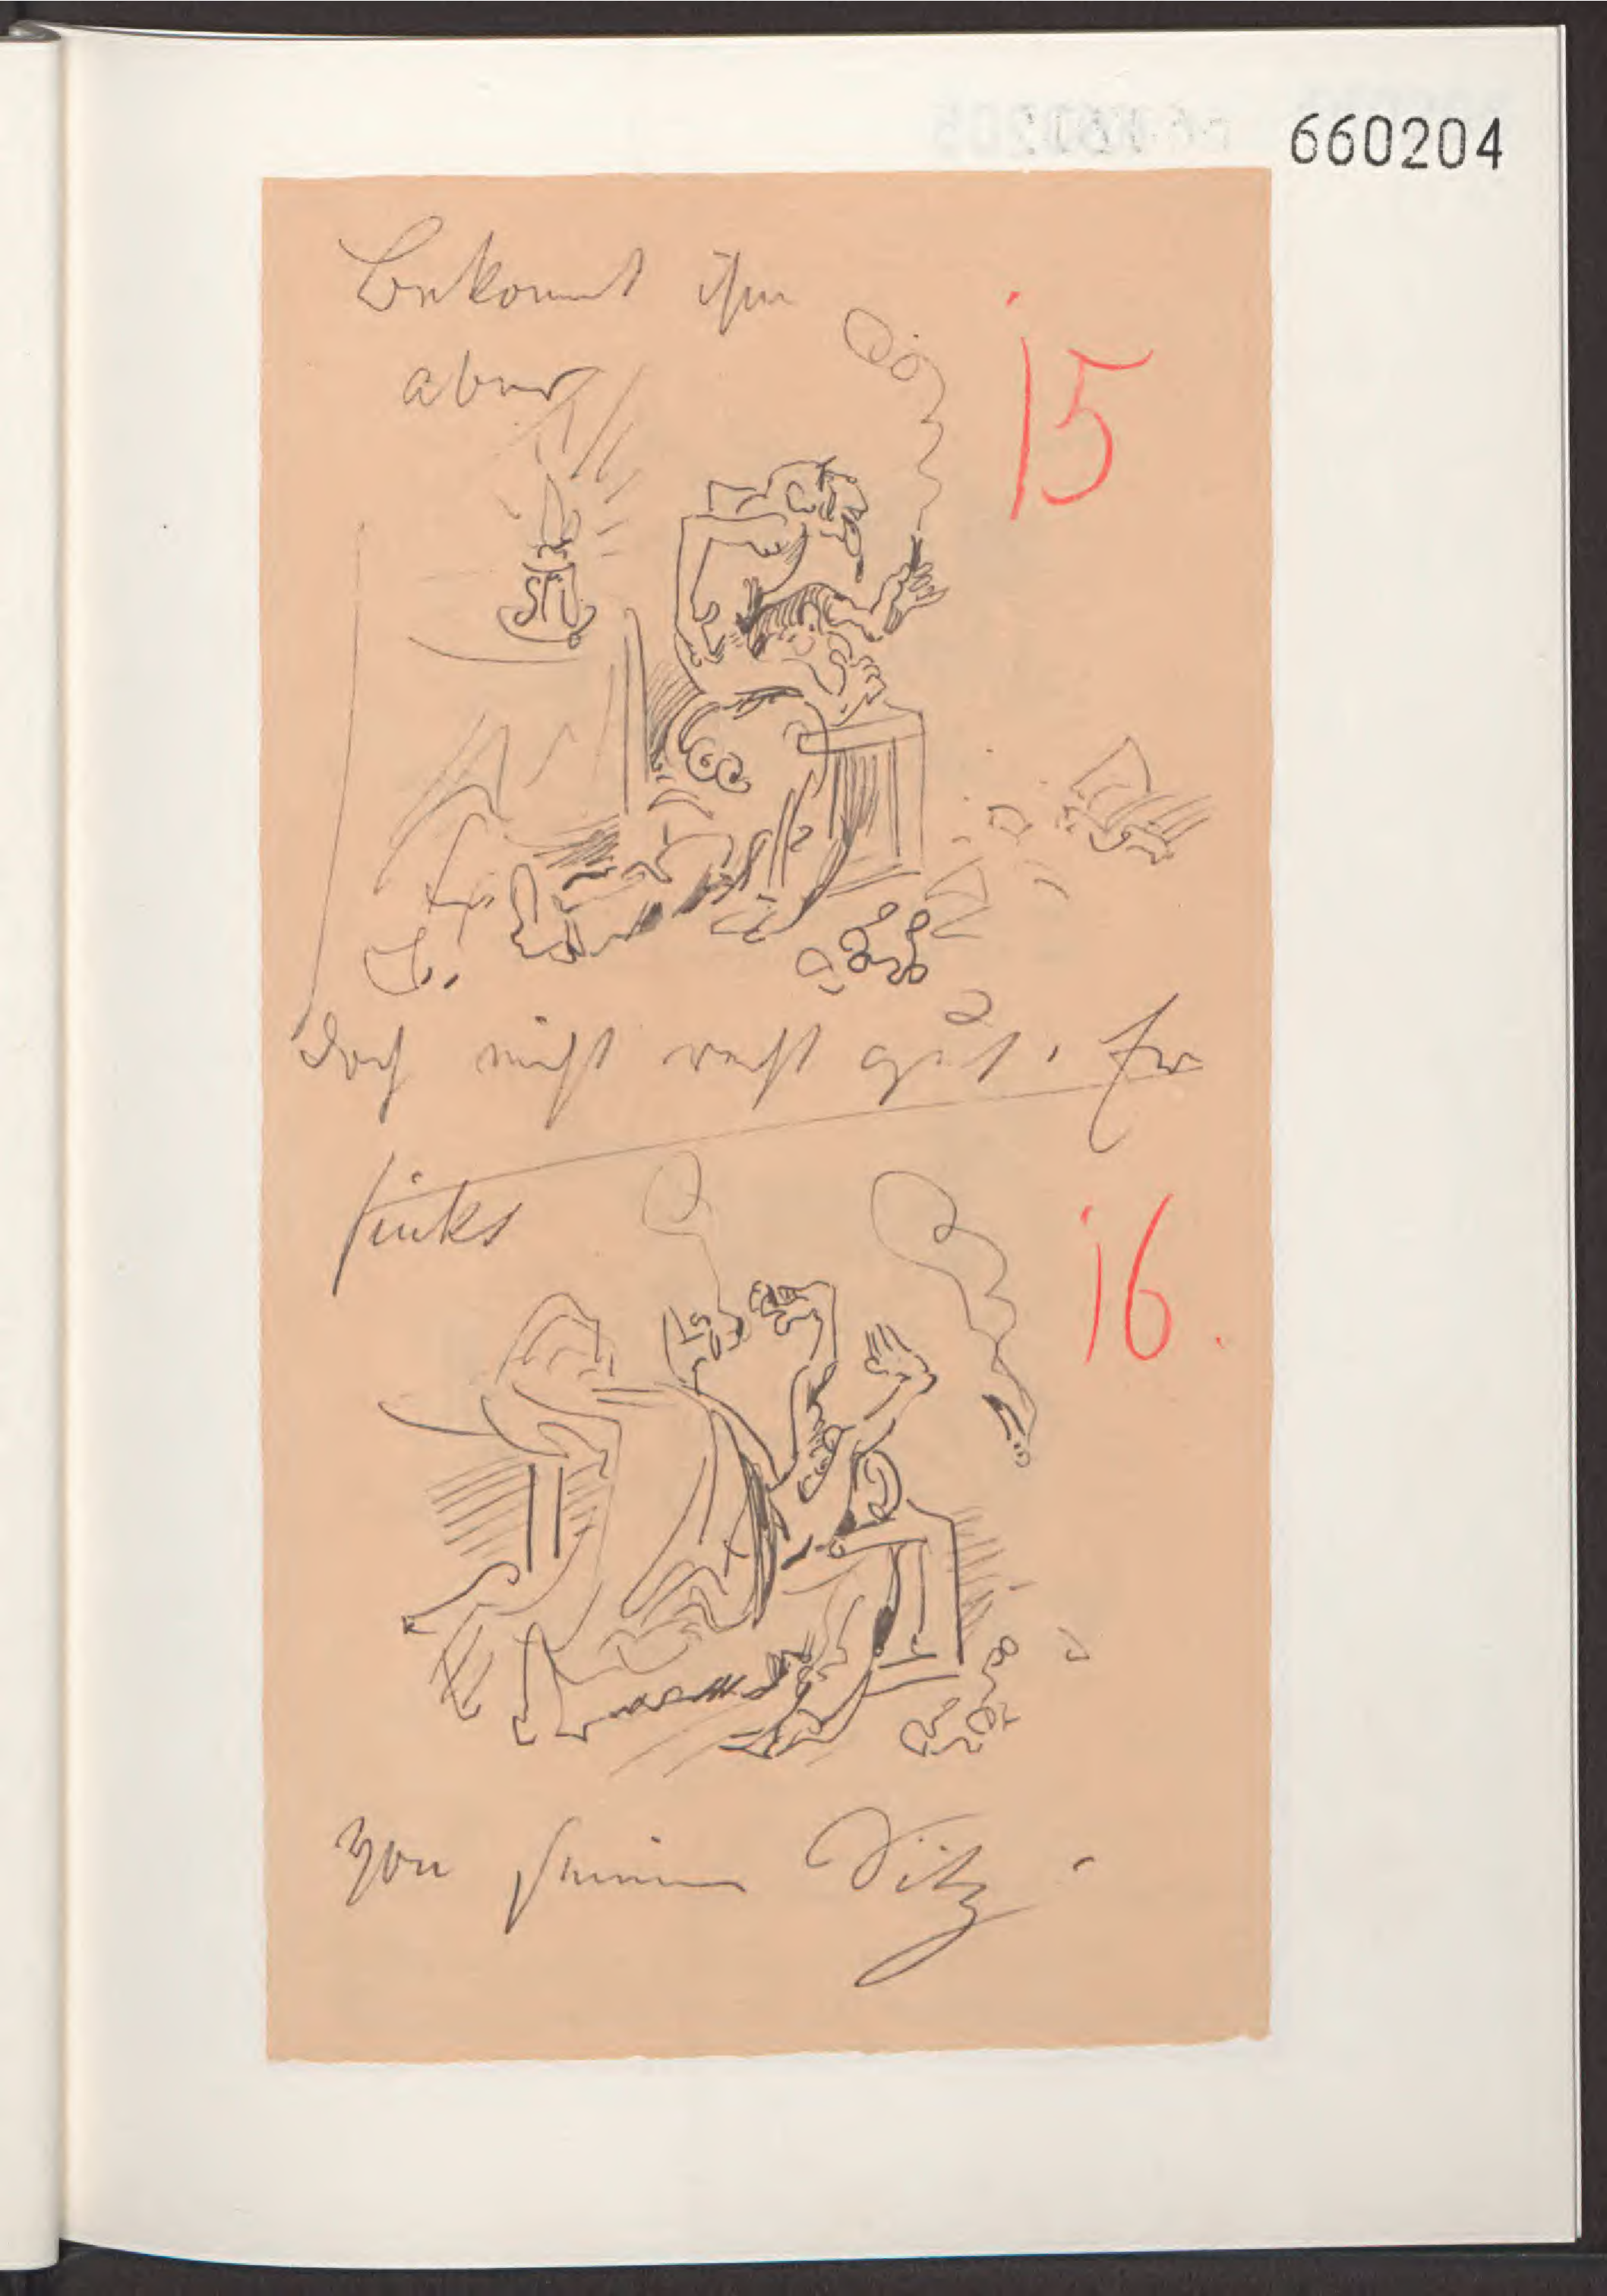 660204
Bekommt ihm
15
aber
doch nicht recht gut. Er
sinkt
16.
von seinem Sitz.